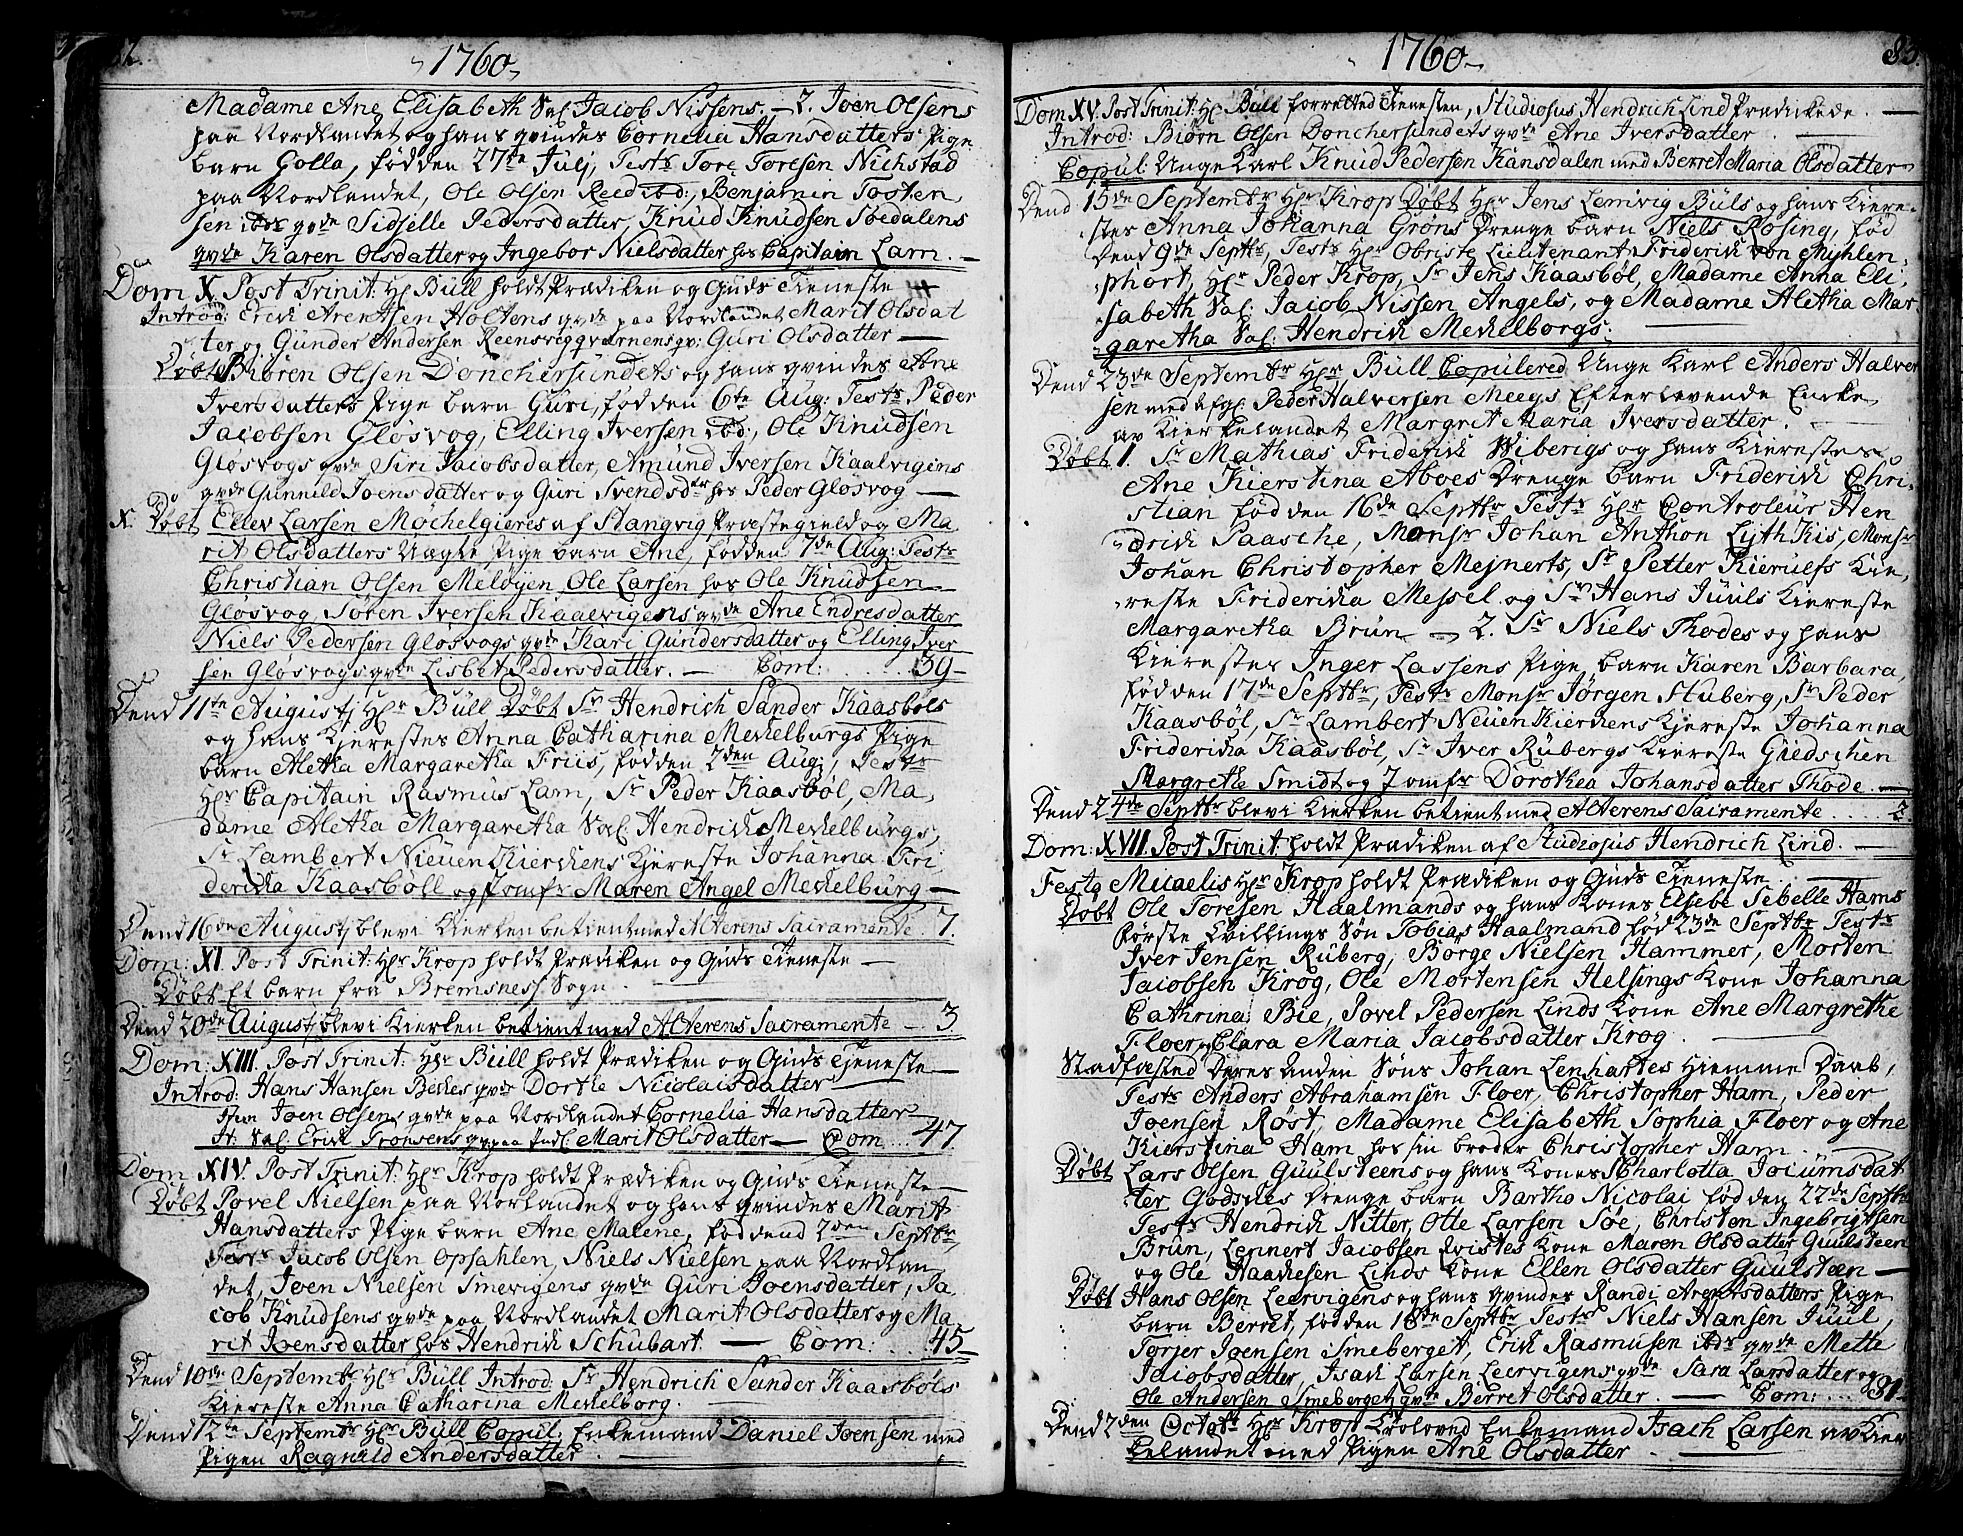 1760
Madame Ane Elisabeth Sal. Jacob Nissens, — 2. Joen Olsens
paa Nordlandet og hans qvindes Cornelia Hansdatters Pige
barn Golla, fød den 27de July, Test: Tore Toresen Nichstad
paa Nordlandet, Ole Olsen Reed ibd:, Benjamin Tosten
sen ibd: qvde Sidselle Pedersdatter, Knud Knudsen Søedalens
qvde Karen Olsdatter og Ingebor Nielsdatter hos Capitain Lam. —
Dom X. Post Trinit: Hr Büll holdt Prædiken og Guds Tieneste
Introd: Erich Arentsen Holtens qvde paa Nordlandet Marit Olsdat
ter og Gunder Andersen Reensvegqværnens qv: Guri Olsdatter —
Døbt Biören Olsen Donchersundets og hans qvindes Ane
Iversdatters Pige barn Guri, fød den 6te Aug: Test: Peder
Jacobsen Gløsvog, Elling Iversen ibd:, Ole Knudsen
Gløsvogs qvde Siri Jacobsdatter, Amund Iversen Kaalvigens
qvde Gunnild Joensdatter og Guri Svendsdtr hos Peder Gløsvog —
X. Døbt Ellev Larsen Møchelgieres af Stangvig Præstegield og Ma
rit Olsdatters Uægte Pige barn Ane, fød den 7de Aug: Test:
Christian Olsen Meløyen, Ole Larsen hos Ole Knudsen
Gløsvog, Søren Iversen Kaalvigens qvde Ane Endresdatter
Niels Pedersen Gløsvogs qvde Kari Gundersdatter og Elling Iver
sen Gløsvogs qvde Lisbet Pedersdatter. — Com: 39 —
Dend 11te Augustj Hr Büll Døbt Sr Hendrich Sander Kaasbøls
og hans Kierestes Anna Catharina Mechelburgs Pige
barn Aletha Margaretha Friis, fød den 2den Aug:, Test:
Hr Capitain Rasmus Lam, Sr Peder Kaasbøl, Ma
dame Aletha Margaretha Sal. Hendrich Mechelburgs,
Sr Lambert Nieuen Kierchens Kiereste Johanna Fri
dericha Kaasböll og Jomfr Maren Angel Mechelburg —
Dend 16de Augustj blev Kirken betient med Alterens Sacramente. 7.
Dom: XI. Post Trinit: Hr Krop holdt Prædiken og Guds Tieneste —
Døbt Et barn fra Bremsness Sogn.
Dend 20de Augustj blev Kirken betient med Alterens Sacramente — 3
Dom: XIII. Post Trinit: Hr Büll holdt Prædiken og Guds Tieneste —
Introd: Hans Hansen Beches qvde Dorthe Nicolaisdatter
Joen Olsens qvde paa Nordlandet Cornelia Hansdatter
Sal. Erich Tronsens qv paa Marit Olsdatter — Com 47
Dom XIV. Post Trinit: Hr Krop holdt Prædiken og Guds Tieneste —
Døbt Povel Nielsen paa Norlandet og hans qvindes Marit
Hansdatters Pige barn Ane Malene, fød dend 2den Septbr
Test: Jacob Olsen Opsahlen, Niels Nielsen paa Nordlan
det, Joen Nielsen Smevigens qvde Guri Joensdatter, Ja
cob Knudsens qvde paa Nordlandet Marit Olsdatter og Ma
rit Ivensdatter hos Hendrich Schubart — Com: 45 —
Dend 10de Septembr Hr Büll Introd: Sr Hendrich Sander Kaasböls
Kiereste Anna Catharina Mechelborg.
Dend 12te Septembr Hr Büll Copul: Enkemand Daniel Joensen med
Pigen Ragnild Andersdatter.
1760
83.
Dom XV. Post Trinit: Hr Büll forretted Tienesten, Studiosus Hendrich Lind Prædickede. —
Introd: Biørn Olsen Donchersundets qvde Ane Iversdatter
Copul: Unge Karl Knud Pedersen Kansdalen med Berret Maria Olsdatter
Dend 15de Septembr Hr Krop Døbt Hr Jens Lemvig Büls og hans Kiere
stes Anna Johanna Gröns Drenge barn Niels Rosing, fød
dend 9de Septbr, Test: Hr Obriste Lieutenant Friderich von Mühlen
phort, Hr Peder Krop, Sr Jens Kaasböl, Madame Anna Eli
sabeth Sal. Jacob Nissen Angels, og Madame Aletha Mar
garetha Sal: Hendrich Mechelborgs.
Dend 23de Septembr Hr Büll Copulered Unge Karl Anders Halver
sen med Afgl: Peder Halversen Meeys Efterlevende Enke
av Kirkelandet Margrit Maria Iversdatter.
Døbt 1. Sr Mathias Friderich Wibergs og hans Kierestes
Ane Kierstina Aboes Drenge barn Friderich Chri
stian fød den 16de Septbr Test: Hr Controleur Hen
drich Paasche, Monsr Johan Anthon Lyth Kiis, Monsr
Johan Christopher Mejnerts, Sr Petter Kierulfs Kie
reste Fridericha Messel og Sr Hans Juuls Kiereste
Margaretha Brun — 2. Sr Niels Thodes og hans
Kierestes Inger Lassens Pige barn Karen Barbara,
fød den 17de Septbr, Test: Monsr Jörgen Stuberg, Sr Peder
Kaasböl, Sr Lambert Neuen Kierchens Kiereste Johanna
Fridericha Kaasböl, Sr Iver Rubergs Kiereste Giedschen
Margrethe Smidt og Jomfr Dorothea Johansdatter Thode. —
Dend 24de Septbr blev Kirken betient med Alterens Sacramente 2.
Dom: XVII. Post Trinit: holdt Prædiken af Studiosus Hendrich Lind. —
Festo Micaelis Hr Krop holdt Prædiken og Guds Tieneste
Døbt Ole Toresen Haalmands og hans Kones Elsebe Sebelle Hams
første Tvillings Søn Tobias Haalmand fød 23de Septbr Test:
Iver Jensen Ruberg, Börge Nielsen Hammer, Morten
Jacobsen Krog, Ole Mortensen Helsings Kone Johanna
Cathrina Bie, Povel Pedersen Linds Kone Ane Margrethe
Floer og Clara Maria Jacobsdatter Krog.
Stadfæsted deres Anden Søns Johan Lenhartes Hiemme Daab,
Test: Anders Abrahamsen Floer, Christopher Ham, Peder
Joensen Røst, Madame Elisabeth Sophia Floer og Ane
Kierstina Ham hos sin broder Christopher Ham.
Døbt Lars Olsen Guulsteens og hans Kones Charlotta Jocumsdat
ter Godskes Drenge barn Bartho Nicolai fød den 22de Septbr
Test: Hendrich Nitter, Otte Larsen Søe, Christen Ingebrigtsen
Brun, Lennert Jacobsen Qvistes Kone Maren Olsdatter Guulsteen
og Ole Haachesen Linds Kone Ellen Olsdatter Guulsteen —
Døbt Hans Olsen Leervigens og hans qvindes Randi Arentsdatters Pige
barn Berret, fød den 18de Septbr Test: Niels Hansen Juul,
Torjer Joensen Smeberget, Erich Rasmusen ibd: qvde Mette
Jacobsdatter, Isach Larsen Leervigens qvde Sara Larsdatter og
Ole Andersen Smeberget qvde Berret Olsdatter. — Com: 81.
Dend 2den Octobr Hr Krop Troloved Enkemand Isach Larsen av Kier
kelandet med Pigen Ane Olsdatter